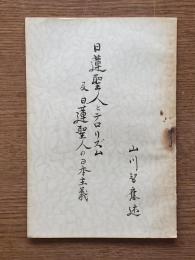 日蓮聖人とテロリズム
及日蓮聖人の日本主義
山川智應述